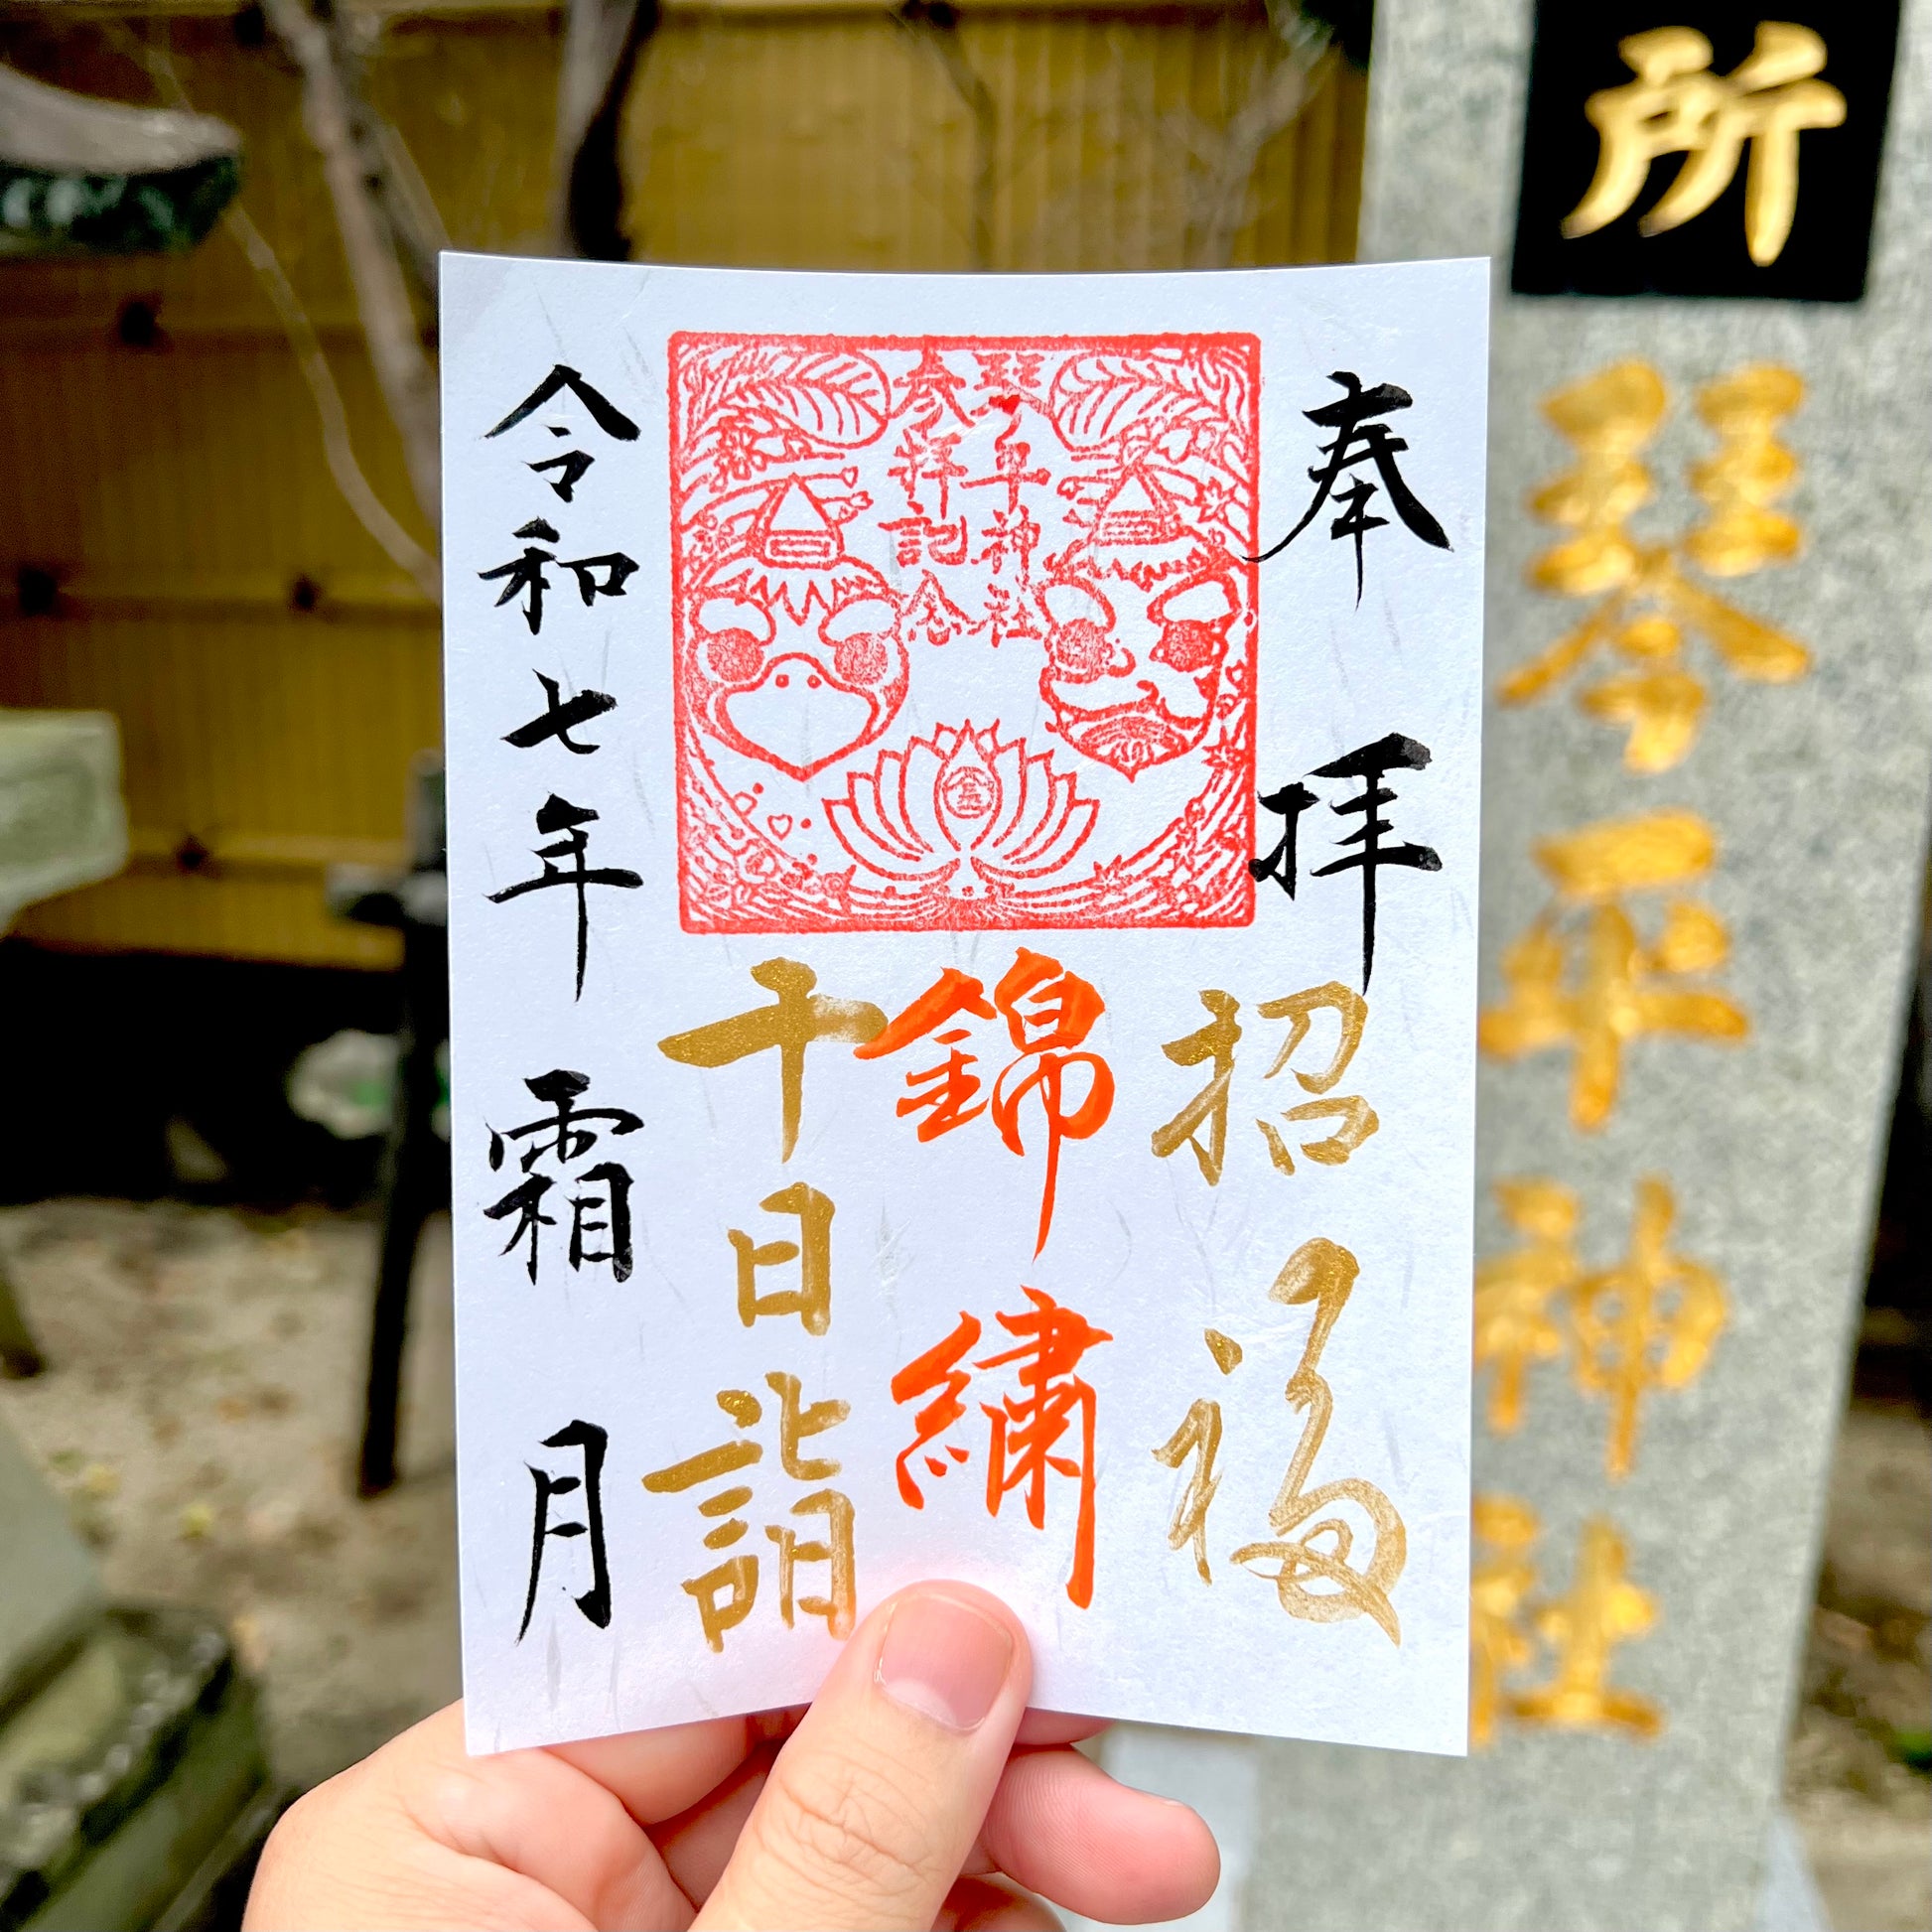 所
琴平神社
奉拝
琴平神社
参拝記念
招福
錦繍
十日詣
令和七年 霜月